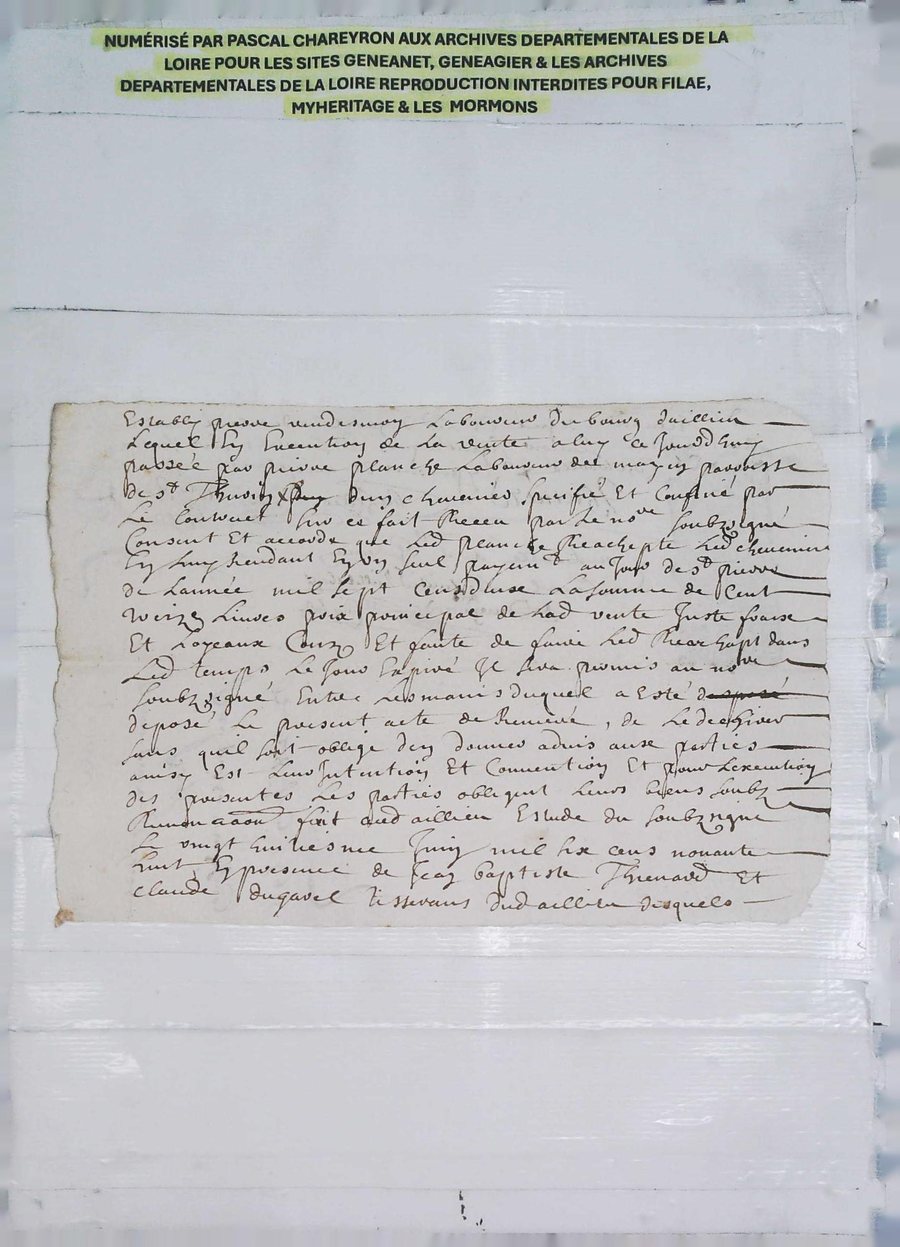 NUMÉRISÉ PAR PASCAL CHAREYRON AUX ARCHIVES DEPARTEMENTALES DE LA
LOIRE POUR LES SITES GENEANET, GENEAGIER & LES ARCHIVES
DEPARTEMENTALES DE LA LOIRE REPRODUCTION INTERDITES POUR FILAE,
MYHERITAGE & LES MORMONS
Estably pierre laboureur du bourg daillieu
Lequel En Execution de La vente a luy ce Jourdhuy
passée par pierre planche Laboureur de paroisse
de st dun chenevier specifié Et Confiné par
Le Contract sur ce fait Receu par Le nore soubzsigné
Consent Et accorde que Led planche Reachepte Led chenevier
En luy Rendant En un seul payemt au Jour de st pierre
de Lannée mil sept cens La somme de Cent
treize Livres prix principal de Lad vente
Et Loyeaux Et faute de faire Led Reachapt dans
Led temps Le Jour Expiré Il sera permis au nore
soubzsigné Entre Les mains duquel a Esté
deposé Le present acte de Remeré, de Le
sans quil soit obligé den donner advis aux parties
ainsy Est Leur Intention Et Convention Et pour Lexecution
des presentes Les parties obligent Leurs biens soubz
fait aud aillieu Estude du soubzsigné
Le vingt huitiesme Juin mil six cens nonante
huit En presence de Jean baptiste Et
claude dugarel tisserans dud aillieu desquels